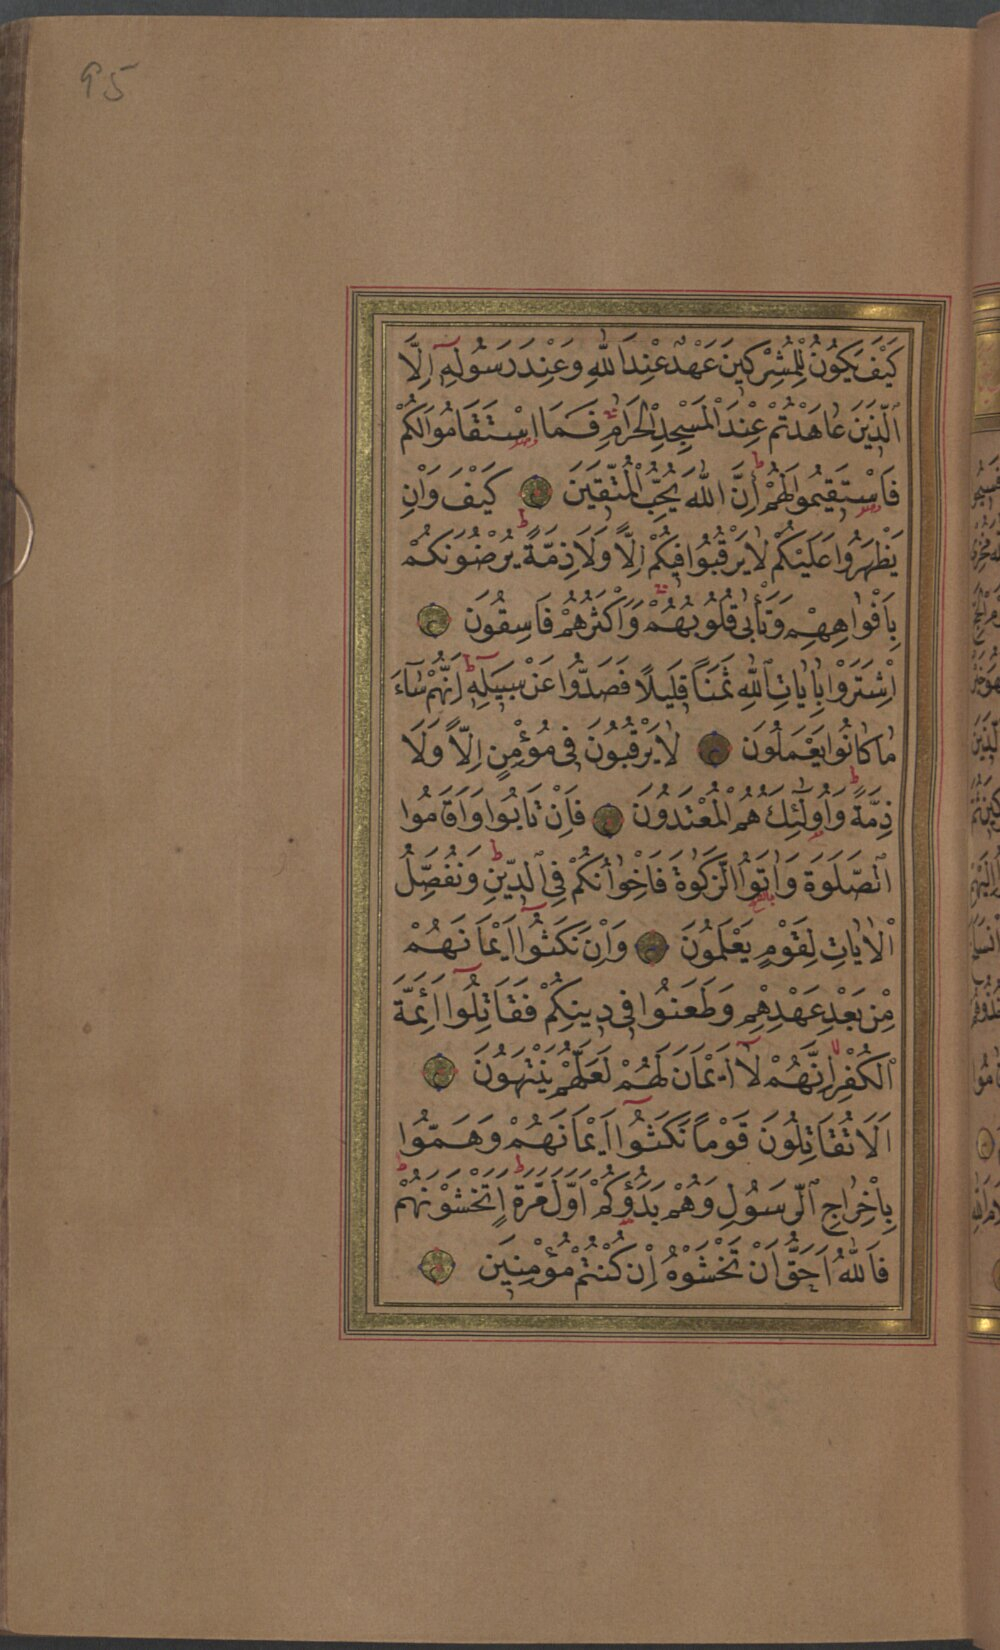 95
كَيْفَ يَكُونُ لِلْمُشْرِكِينَ عَهْدٌ عِنْدَ اللّٰهِ وَعِنْدَ رَسُولِهٖٓ اِلَّا
الَّذِينَ عَاهَدْتُمْ عِنْدَ الْمَسْجِدِ الْحَرَامِ فَمَا اسْتَقَامُوا لَكُمْ
فَاسْتَقِيمُوا لَهُمْ اِنَّ اللّٰهَ يُحِبُّ الْمُتَّقِينَ كَيْفَ وَاِنْ
يَظْهَرُوا عَلَيْكُمْ لَا يَرْقُبُوا فِيكُمْ اِلًّا وَلَا ذِمَّةً يُرْضُونَكُمْ
بِاَفْوَاهِهِمْ وَتَأْبٰى قُلُوبُهُمْ وَاَكْثَرُهُمْ فَاسِقُونَ
اِشْتَرَوْا بِاٰيَاتِ اللّٰهِ ثَمَنًا قَلِيلًا فَصَدُّوا عَنْ سَبِيلِهٖ اِنَّهُمْ سَآءَ
مَا كَانُوا يَعْمَلُونَ لَا يَرْقُبُونَ فِي مُؤْمِنٍ اِلًّا وَلَا
ذِمَّةً وَاُولٰٓئِكَ هُمُ الْمُعْتَدُونَ فَاِنْ تَابُوا وَاَقَامُوا
الصَّلٰوةَ وَاٰتَوُا الزَّكٰوةَ فَاِخْوَانُكُمْ فِي الدِّينِ وَنُفَصِّلُ
الْاٰيَاتِ لِقَوْمٍ يَعْلَمُونَ وَاِنْ نَكَثُوٓا اَيْمَانَهُمْ
مِنْ بَعْدِ عَهْدِهِمْ وَطَعَنُوا فِي دِينِكُمْ فَقَاتِلُوٓا اَئِمَّةَ
الْكُفْرِ اِنَّهُمْ لَآ اَيْمَانَ لَهُمْ لَعَلَّهُمْ يَنْتَهُونَ
اَلَا تُقَاتِلُونَ قَوْمًا نَكَثُوٓا اَيْمَانَهُمْ وَهَمُّوا
بِاِخْرَاجِ الرَّسُولِ وَهُمْ بَدَؤُكُمْ اَوَّلَ مَرَّةٍ اَتَخْشَوْنَهُمْ
فَاللّٰهُ اَحَقُّ اَنْ تَخْشَوْهُ اِنْ كُنْتُمْ مُؤْمِنِينَ